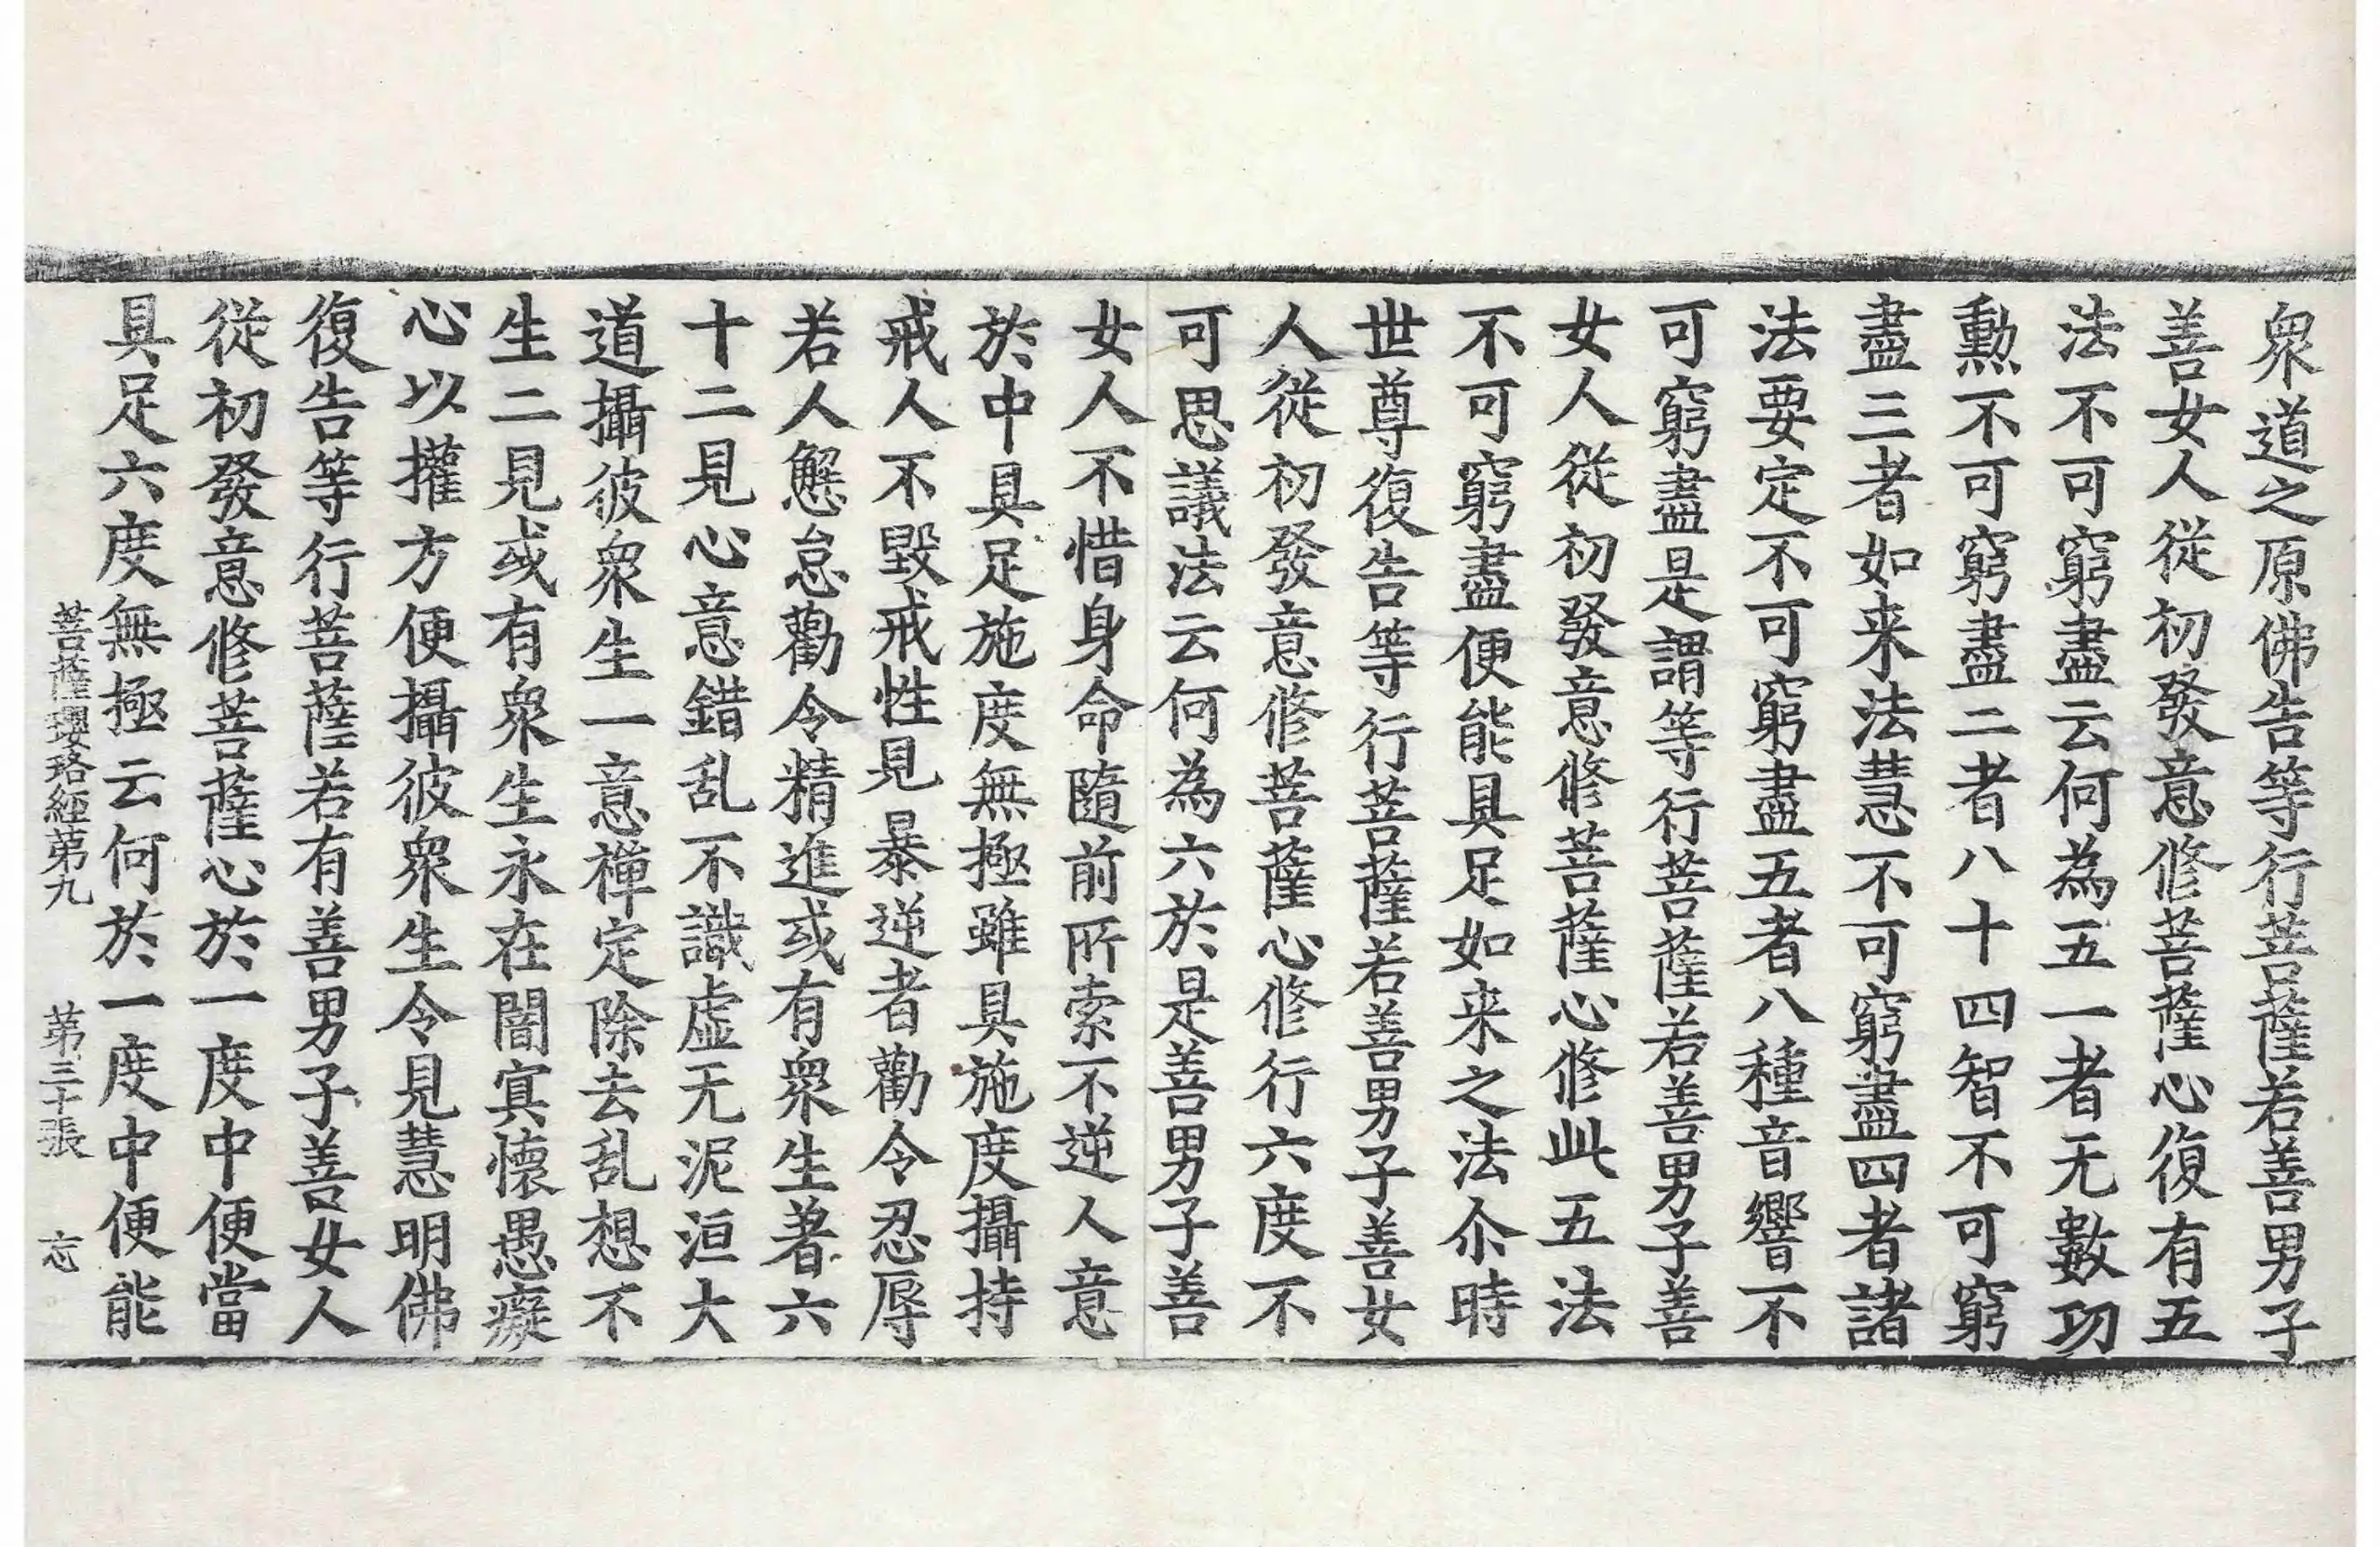 衆道之原佛告等行菩薩若善男子
善女人從初發意修菩薩心復有五
法不可窮盡云何為五一者无數功
勲不可窮盡二者八十四智不可窮
盡三者如来法慧不可窮盡四者諸
法要定不可窮盡五者八種音響不
可窮盡是謂等行菩薩若善男子善
女人從初發意修菩薩心修此五法
不可窮盡便能具足如来之法尒時
世尊復告等行菩薩若善男子善女
人從初發意修菩薩心修行六度不
可思議法云何為六於是善男子善
女人不惜身命隨前所索不逆人意
於中具足施度無極雖具施度攝持
戒人不毀戒性見暴逆者勸令忍辱
若人懈怠勸令精進或有衆生著六
十二見心意錯乱不識虚无泥洹大
道攝彼衆生一意禪定除去乱想不
生二見或有衆生永在闇寘懷愚癡
心以攉方便攝彼衆生令見慧明佛
復告等行菩薩若有善男子善女人
從初發意修菩薩心於一度中便當
具足六度無極云何於一度中便能
菩薩瓔珞經苐九 苐三十張 忘